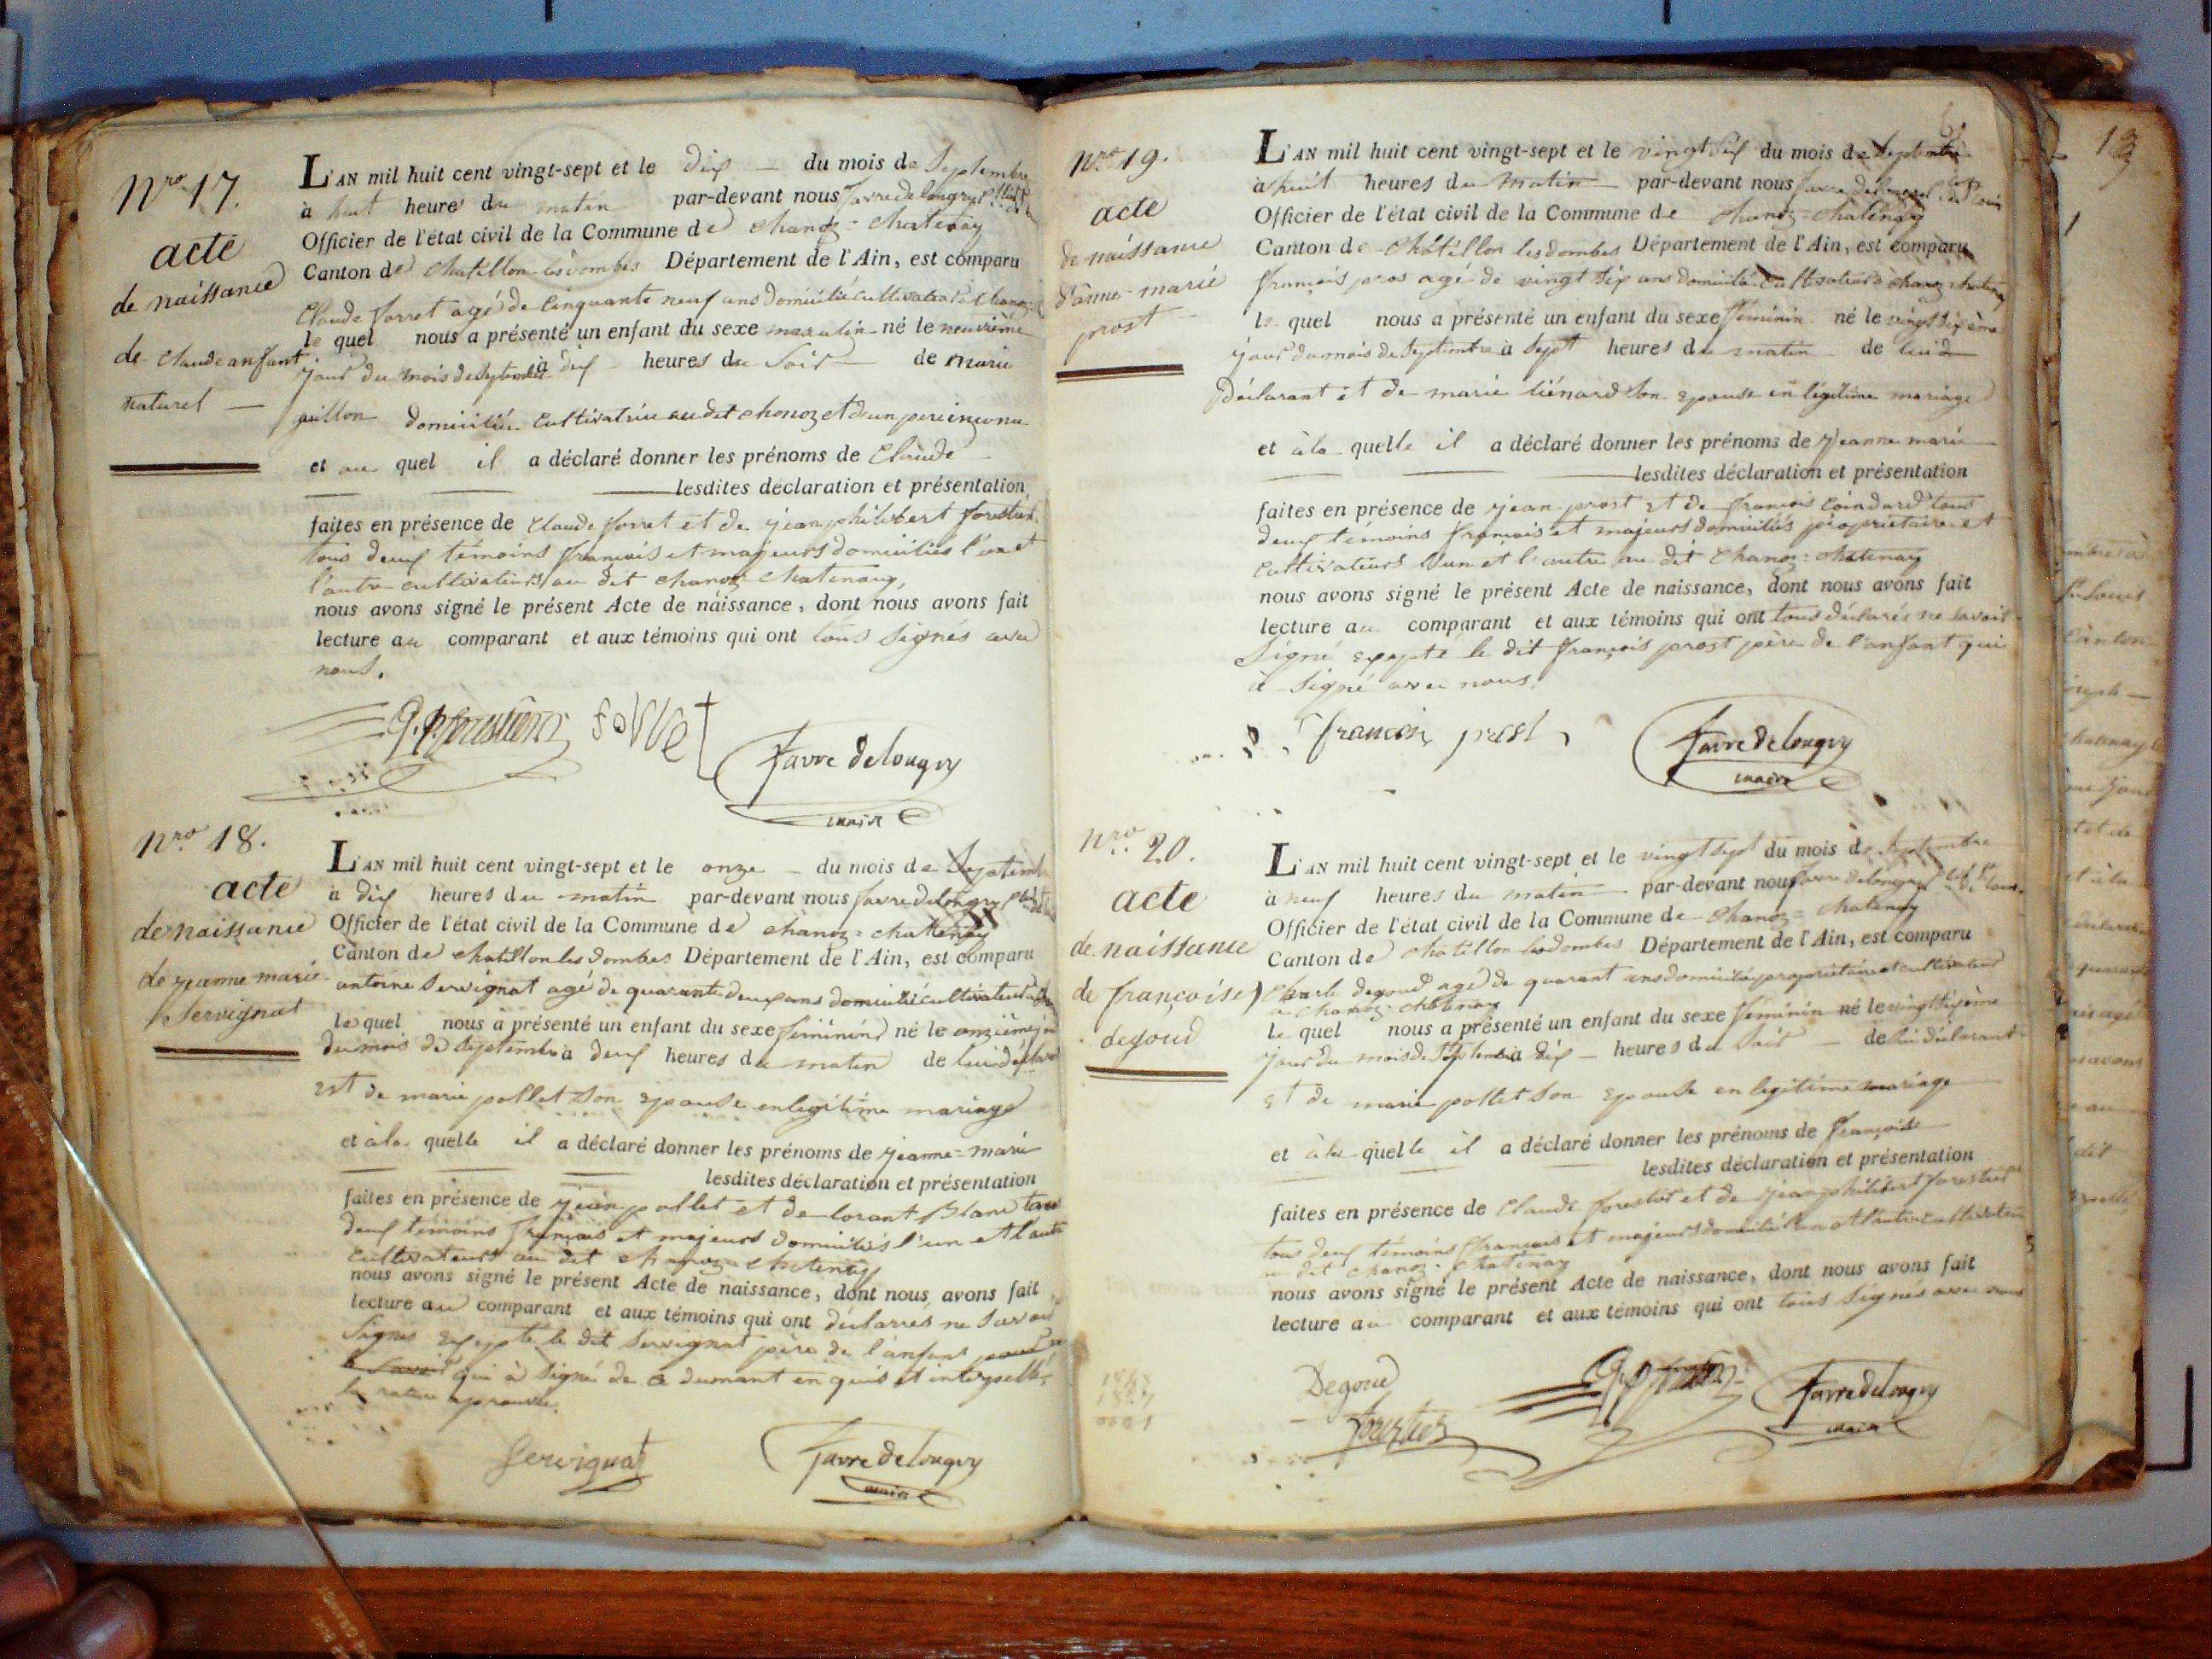 Nro 17.
acte
de naissance
de Claude anfant
naturel
L'AN mil huit cent vingt-sept et le dix du mois de Septembre
à huit heures du matin par-devant nous favre delongry
Officier de l'état civil de la Commune de chanoz = chatenay
Canton de chatillon les dombes Département de l'Ain, est comparu
Claude forret agé de Cinquante neuf ans domicilié cultivateur
le quel nous a présenté un enfant du sexe masculin né le neuvième
jour du mois de Septembre à dix heures du Soir de marie
guillon domiciliée Cultivatrice au dit chonoz et d'un pere inconnu
et au quel il a déclaré donner les prénoms de Claude
lesdites déclaration et présentation
faites en présence de Claude forret et de jean philibert forestier
tous deux témoins français et majeurs domiciliés l'un et
l'autre cultivateurs au dit chanoz chatenay,
nous avons signé le présent Acte de naissance, dont nous avons fait
lecture au comparant et aux témoins qui ont tous Signés avec
nous.
favre delongry
maire
Nro 18.
acte
de naissance
de jeanne marie
Servignat
L'AN mil huit cent vingt-sept et le onze du mois de Septembre
à dix heures du matin par-devant nous favre delongry
Officier de l'état civil de la Commune de chanoz = chatenay
Canton de chatillon les dombes Département de l'Ain, est comparu
antoine Servignat agé de quarante deux ans domicilié cultivateur
le quel nous a présenté un enfant du sexe féminin né le onzième jour
du mois de Septembre à deux heures du matin de lui déclarant
et de marie pollet Son epouse en legitime mariage
et à la quelle il a déclaré donner les prénoms de jeanne = marie
lesdites déclaration et présentation
faites en présence de jean pollet et de lorant Blanc tous
deux témoins français et majeurs domiciliés l'un et l'autre
Cultivateurs au dit chanoz = chatenay
nous avons signé le présent Acte de naissance, dont nous avons fait
lecture au comparant et aux témoins qui ont déclarrés ne Savoir
Signer exepté le dit Servignat père de l'anfant
qui à Signé de ce dumant enquis et interpellé,
la rature aprouvée.
Servignat
favre delongry
maire
Nro 19.
acte
de naissance
d'anne-marie
prost
L'AN mil huit cent vingt-sept et le vingt Six du mois de Septembre
à huit heures du matin par-devant nous favre delongry
Officier de l'état civil de la Commune de chanoz = chatenay
Canton de Châtillon les dombes Département de l'Ain, est comparu
françois pros agé de vingt Six ans domicilié Cultivateur à chanoz chatenay
le quel nous a présenté un enfant du sexe féminin né le vingt Sixème
jour du mois de Septembre à Sept heures du matin de lui
Déclarant et de marie liénard Son epouse en légitime mariage
et à la quelle il a déclaré donner les prénoms de jeanne marie
lesdites déclaration et présentation
faites en présence de jean prost et de françois Coindard tous
deux témoins français et majeurs domiciliés propriétaire et
Cultivateurs l'un et l'autre au dit Chanoz = chatenay
nous avons signé le présent Acte de naissance, dont nous avons fait
lecture au comparant et aux témoins qui ont tous déclarés ne savoir
Signé exepté le dit françois prost père de l'anfant qui
à Signé avec nous.
francois prost
favre delongry
maire
Nro 20.
acte
de naissance
de françoise
degoud
L'AN mil huit cent vingt-sept et le vingt Sept du mois de Septembre
à neuf heures du matin par-devant nous favre delongry
Officier de l'état civil de la Commune de Chanoz = chatenay
Canton de chatillon les dombes Département de l'Ain, est comparu
Charle degoud agé de quarant ans domicilié propriétaire et cultivateur
à chanoz = chatenay
le quel nous a présenté un enfant du sexe féminin né le vingt Sixème
jour du mois de Septembre à dix heures du Soir de lui déclarant
et de marie pollet Son epouse en legitime mariage
et à la quelle il a déclaré donner les prénoms de françoise
lesdites déclaration et présentation
faites en présence de Claude forestier et de jean philibert forestier
tous deux témoins francais et majeurs domicilié l'un et l'autre cultivateur
au dit chanoz = chatenay
nous avons signé le présent Acte de naissance, dont nous avons fait
lecture au comparant et aux témoins qui ont tous Signés avec nous
Degoud
forestier
favre delongry
maire